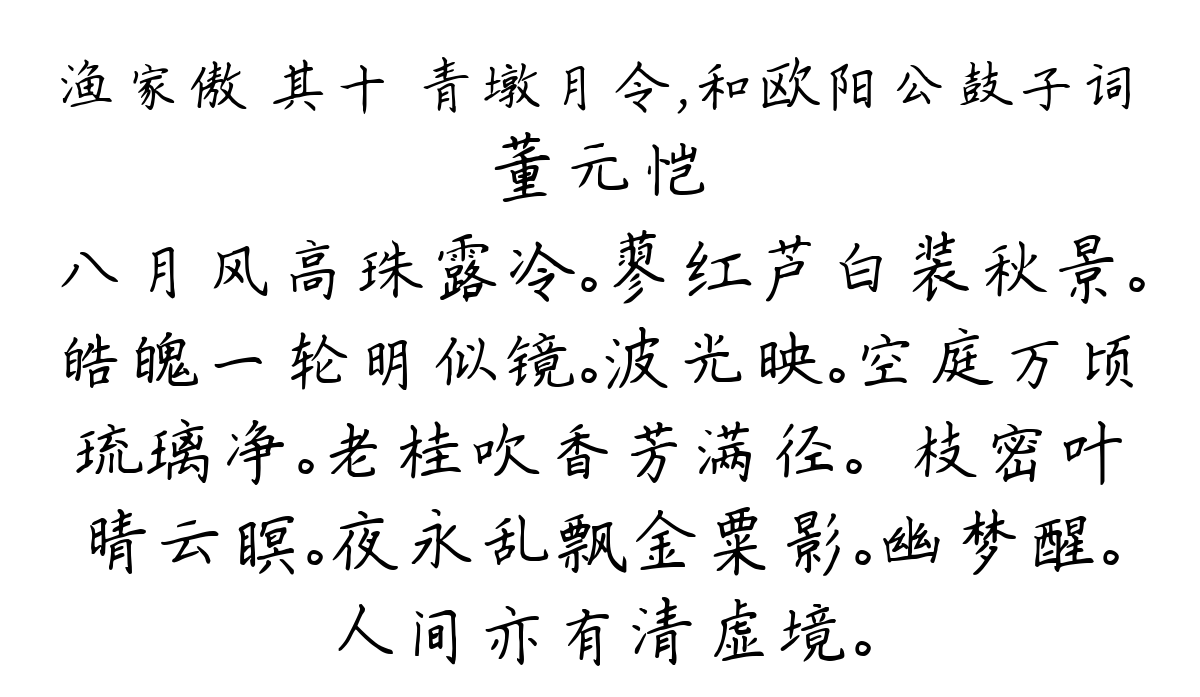 渔家傲 其十 青墩月令,和欧阳公鼓子词
董元恺
八月风高珠露冷。蓼红芦白装秋景。
皓魄一轮明似镜。波光映。空庭万顷
琉璃净。老桂吹香芳满径。 枝密叶
晴云瞑。夜永乱飘金粟影。幽梦醒。
人间亦有清虚境。